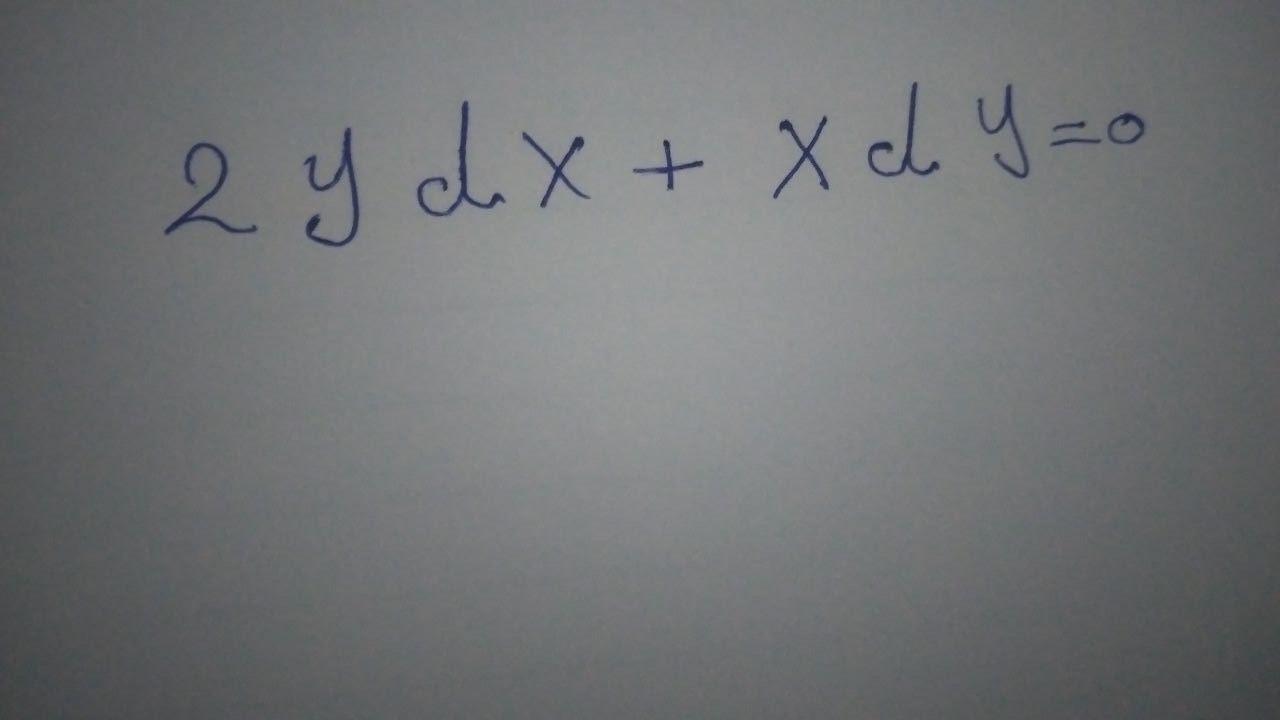 2 y dx + x dy = 0